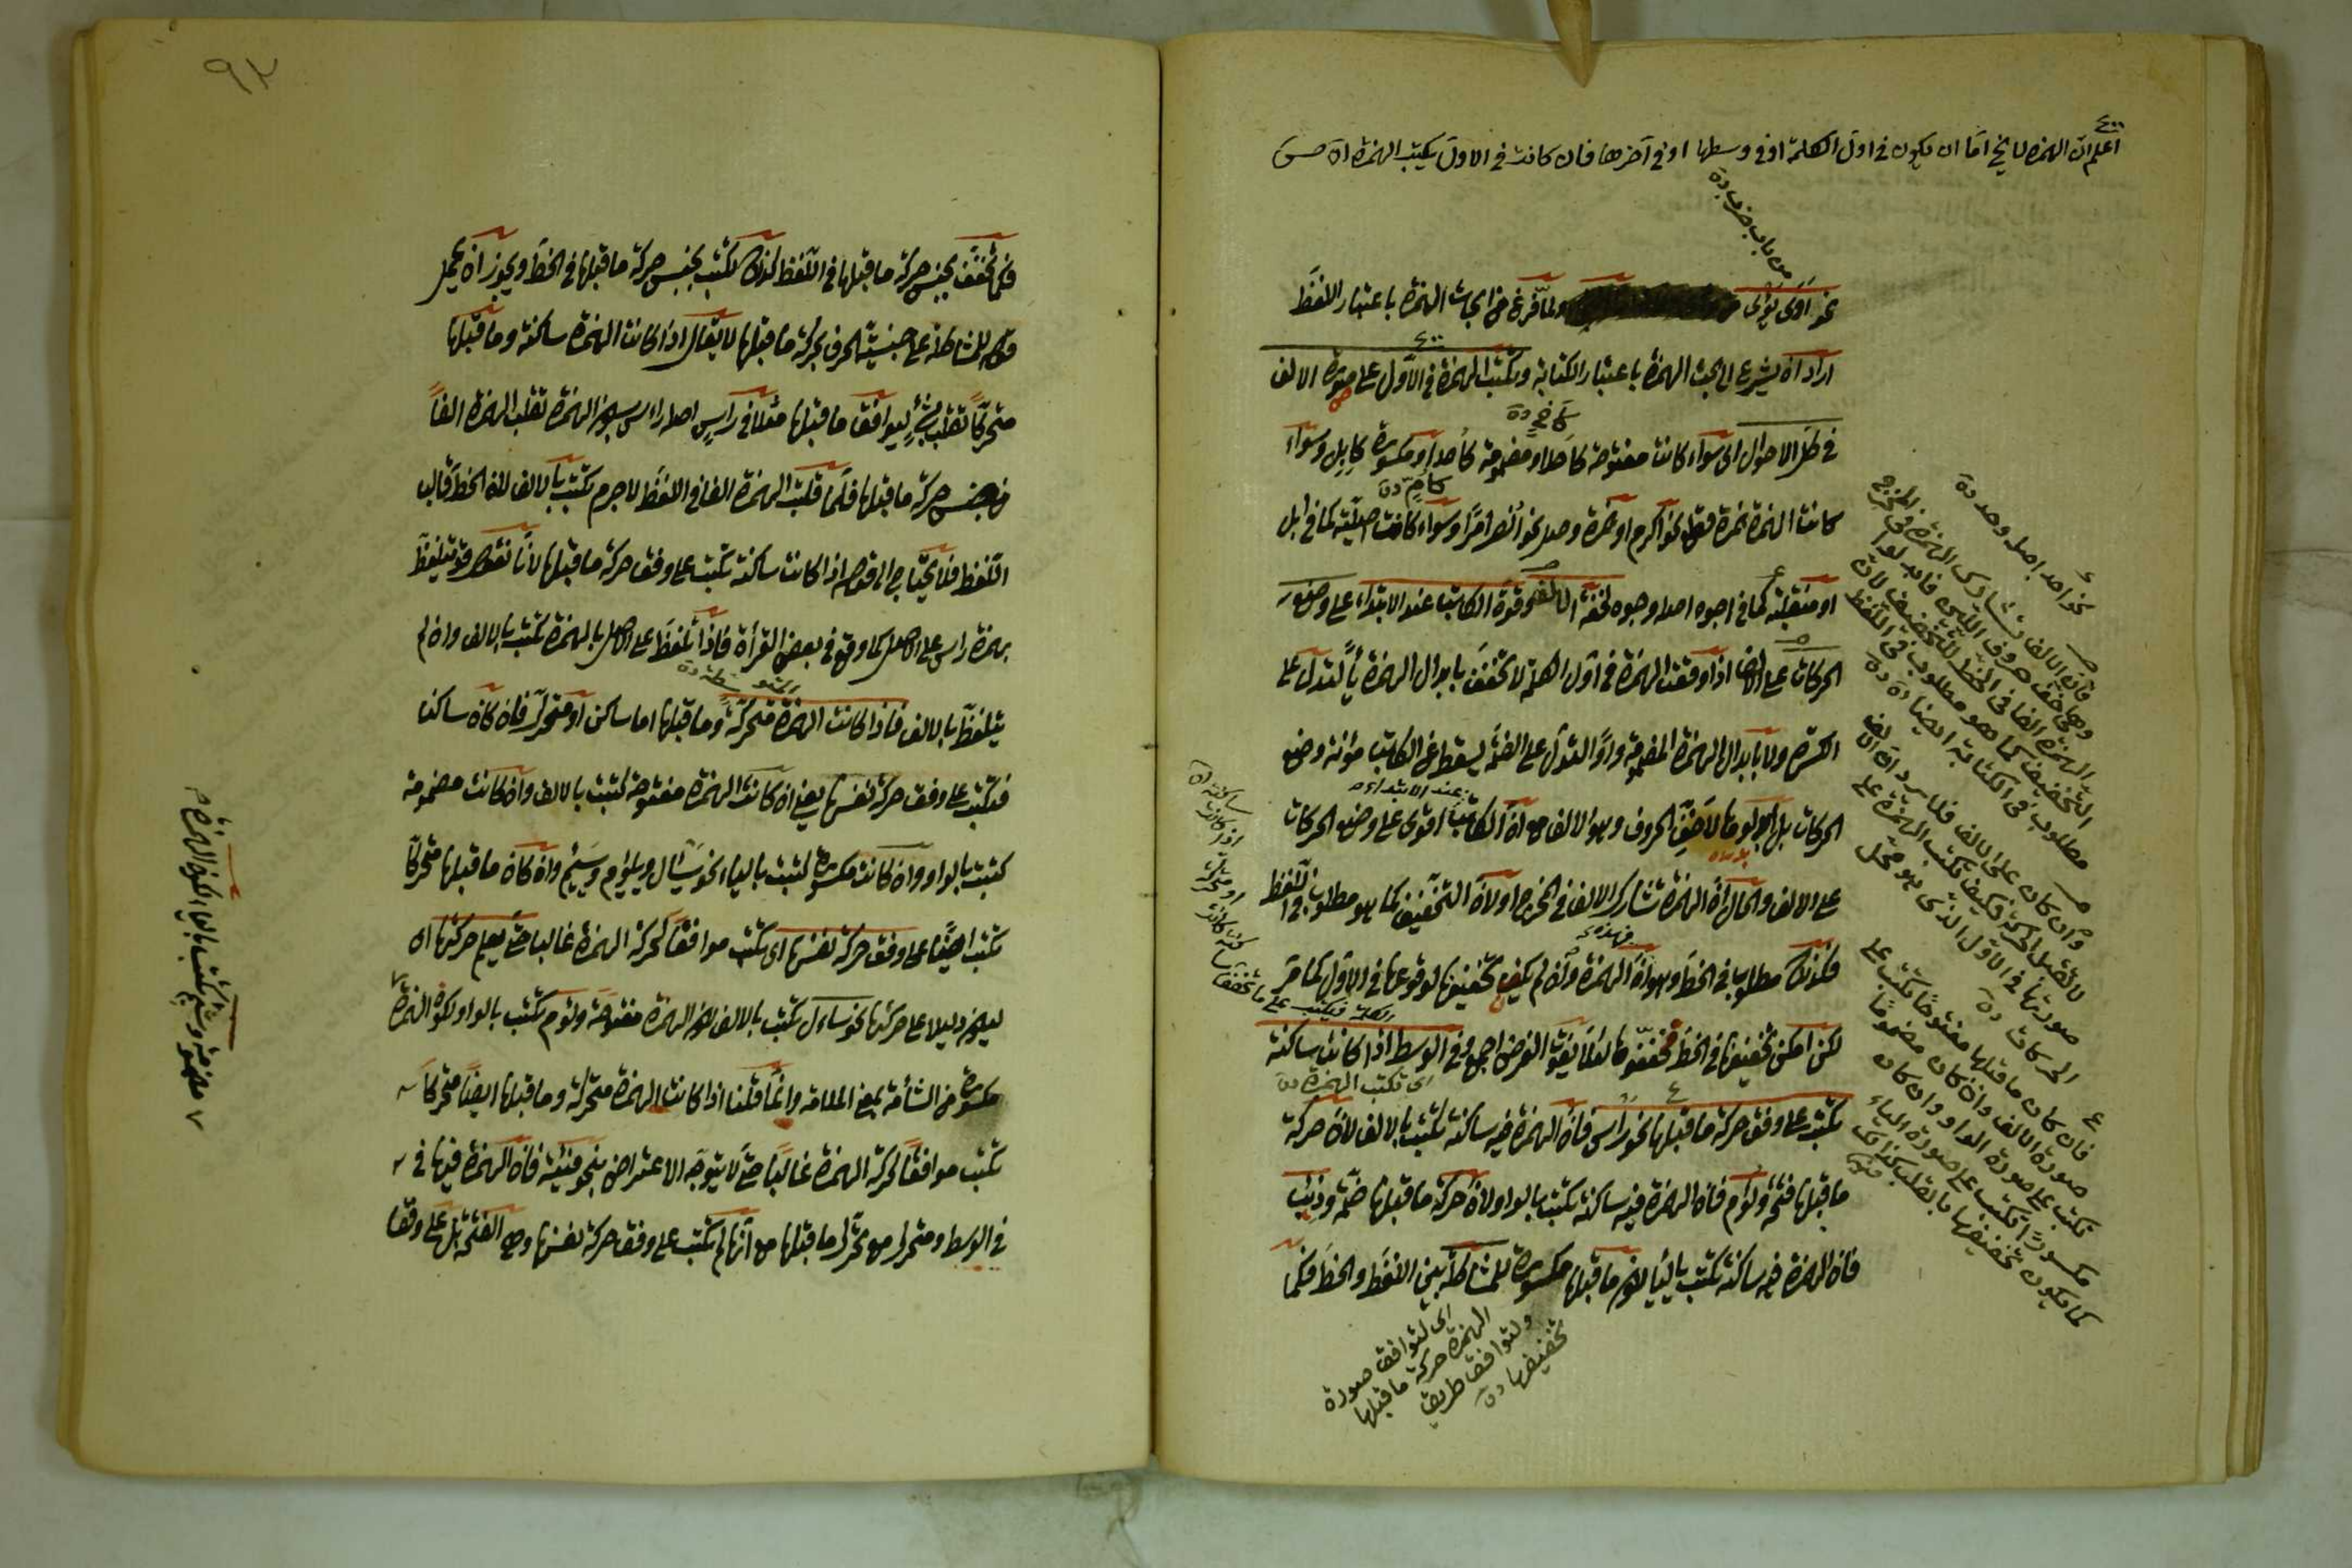 اعلم ان الهمزة لا يخ اما ان يكون فى اول الكلمة او فى وسطها او فى آخرها فان كانت فى الاول يكتب الهمزة
من باب ضرب دة
نحو اوى يؤى ولما فرغ من ابحاث الهمزة باعتبار اللفظ
اراد ان يشرع الى ابحث الهمزة باعتبار الكتابة وتكتب الهمزة فى الاول على صورة الالف
فى كل الاحوال اى سواء كانت مفتوحة كاحد او مضمومة كاحد او مكسورة كابل وسواء
كانت الهمزة همزة قطع نحو اكرم او همزة وصل نحو انصر امرا وسواء كانت اصلية كما فى ابل
او منقلبة كما فى اجوه اصله وجوه لخفة الالف وقوة الكاتب عند الابتداء على وضع
الحركات على الالف اذا وقعت الهمزة فى اول الكلمة لا تخفف بابدال الهمزة ياء لتدل على
الكسرة ولا بابدال الهمزة المضمومة واوا لتدل على الضمة يسقط عن الكاتب مؤنة وضع
الحركات بل ابدلوها لاخف الحروف وهو الالف مع ان الكاتب اقوى على وضع الحركات
عند الابتداء
على الالف والحال ان الهمزة تشارك الالف فى المخرج اولان التخفيف كما هو مطلوب فى اللفظ
فكذلك مطلوب فى الخط وهو ان الهمزة وان لم يكن تخفيفها لوقوعها فى الاول كما مر
لكن امكن تخفيفها فى الخط فخففوها لئلا يفوت الغرض اجمع وفى الوسط اذا كانت ساكنة
اى تكتب الهمزة دة
تكتب على وفق حركة ما قبلها نحو راس فان الهمزة فيه ساكنة تكتب بالالف لان حركة
ما قبلها فتحة ولؤم فان الهمزة فيه ساكنة تكتب بالواو لان حركة ما قبلها ضمة وذئب
فان الهمزة فيه ساكنة تكتب بالياء لكون ما قبلها مكسورة للمشاكلة بين اللفظ والخط فكما
اى لتوافق صورة
الهمزة حركة ما قبلها
ولتوافق طريق
تخفيفها دة
نحو احد اصله وحد دة
فان الالف تشارك الهمزة فى المخرج
وهى اخف حروف اللين فابدلوا
الهمزة الفا فى الخط للتخفيف لان
التخفيف كما هو مطلوب فى اللفظ
مطلوب فى الكتابة ايضا دة
وان كان على الالف فلا يرد ان الالف
لا تقبل الحركة فكيف تكتب الهمزة على
صورتها فى الاول الذى هو محل
الحركات دة
فان كان ما قبلها مفتوحا تكتب على
صورة الالف وان كان مضموما
تكتب على صورة الواو وان كان
مكسورا تكتب على صورة الياء
كما يكون تخفيفها بالقلب كذلك
٩٢
فكما تخفف بجنس حركة ما قبلها فى اللفظ كذلك تكتب بجنس حركة ما قبلها فى الخط ويجوز ان يحمل
قوله للمشاكلة على جنسية الحرف بحركة ما قبلها لا يقال اذا كانت الهمزة ساكنة وما قبلها
متحركا تقلب بشئ ليوافق ما قبلها مثلا فى راس اصله رأس بسكون الهمزة تقلب الهمزة الفا
من جنس حركة ما قبلها فلما قلبت الهمزة الفا فى اللفظ لا جرم تكتب بالالف لان الخط قالب
اللفظ فلا يحتاج الى قوله اذا كانت ساكنة تكتب على وفق حركة ما قبلها لانا نقول قد يتلفظ
بهمزة راس على الاصل كما وقع فى بعض القراة فاذا تلفظ على الاصل بالهمزة تكتب بالالف وان لم
يتلفظ بالالف فاذا كانت الهمزة متحركة وما قبلها اما ساكن او متحرك فان كان ساكنا
فتكتب على وفق حركة نفسها يعنى ان كانت الهمزة مفتوحة كتبت بالالف وان كانت مضمومة
كتبت بالواو وان كانت مكسورة كتبت بالياء نحو يسال ويلؤم ويسئم وان كان ما قبلها متحركا
تكتب ايضا على وفق حركة نفسها اى تكتب موافقا لحركة الهمزة غالبا حتى يعلم حركتها اى
ليكون دليلا على حركتها نحو سأل تكتب بالالف لكون الهمزة مفتوحة ولؤم تكتب بالواو لكون الهمزة
مكسورة من الشأمة بمعنى الملامة وانما قلنا اذا كانت الهمزة متحركة وما قبلها ايضا متحركا
تكتب موافقا لحركة الهمزة غالبا حتى لا يتوجه الاعتراض بنحو فئة فان الهمزة فيها فى
فى الوسط ومتحرك مع تحرك ما قبلها مع انها لم تكتب على وفق حركة نفسها وهى الفتحة بل على وفق
مضمومة وسئم تكتب بالياء لكون الهمزة